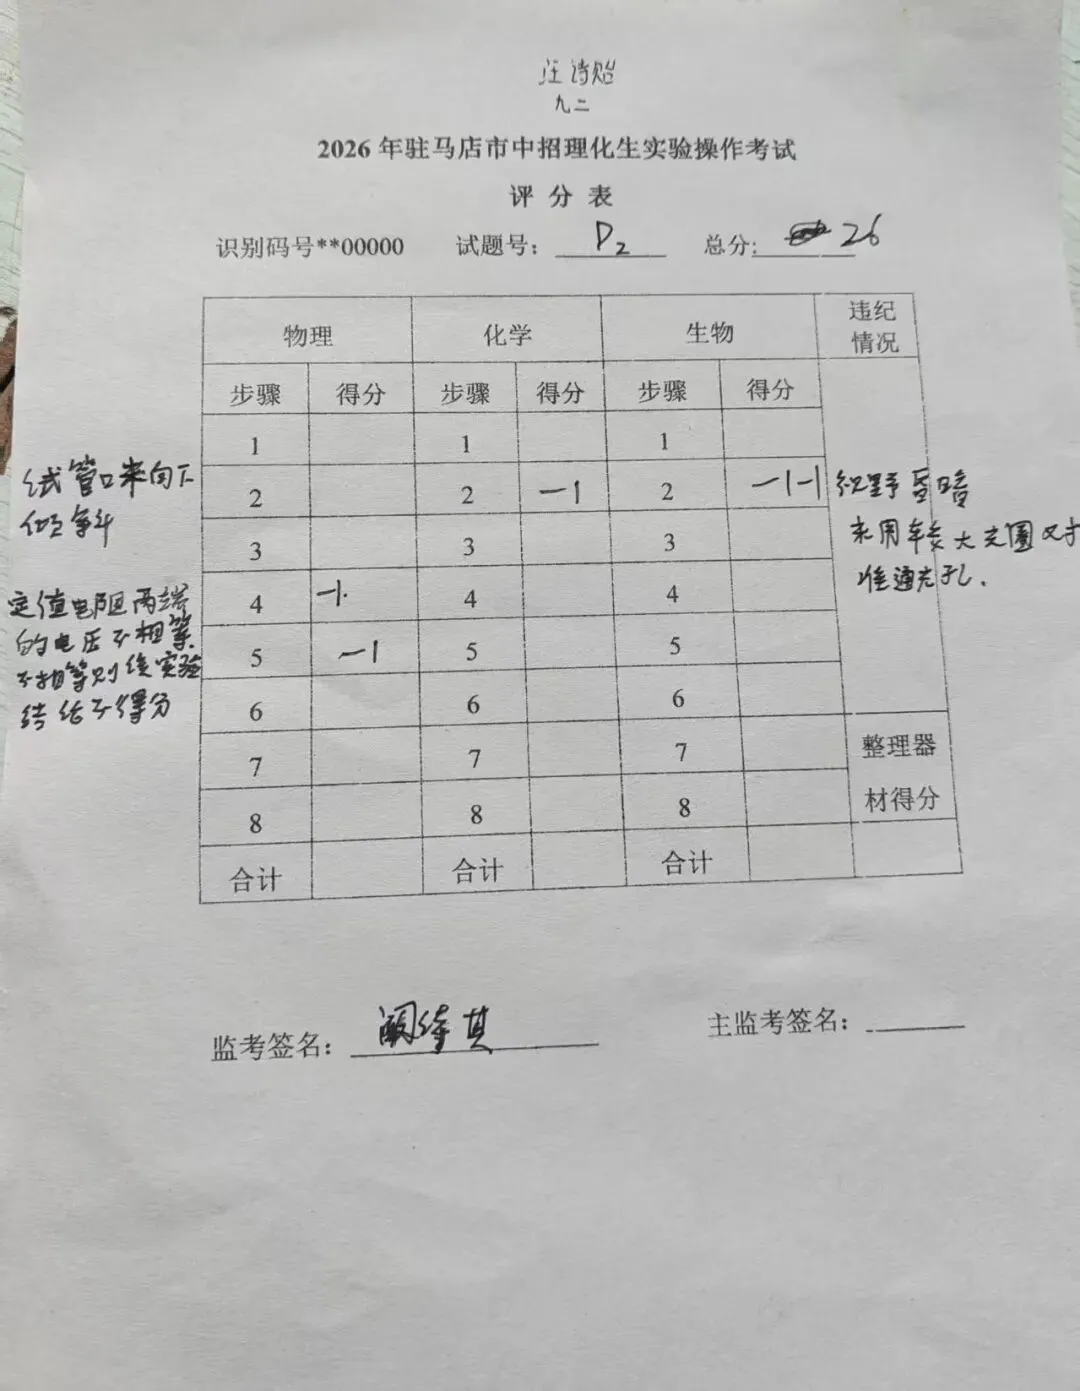 汪诗贻
九二
2026年驻马店市中招理化生实验操作考试
评分表
识别码号**00000 试题号: D2 总分: 26
物理 化学 生物 违纪情况
步骤 得分 步骤 得分 步骤 得分
1 1 1
2 2 -1 2 -1-1
3 3 3
4 -1 4 4
5 -1 5 5
6 6 6
7 7 7 整理器
8 8 8 材得分
合计 合计 合计
试管口未向下
倾斜
定值电阻两端
的电压不相等
不相等则后实验
结论不得分
视野昏暗
未用较大光圈对
准通光孔.
监考签名: 主监考签名: